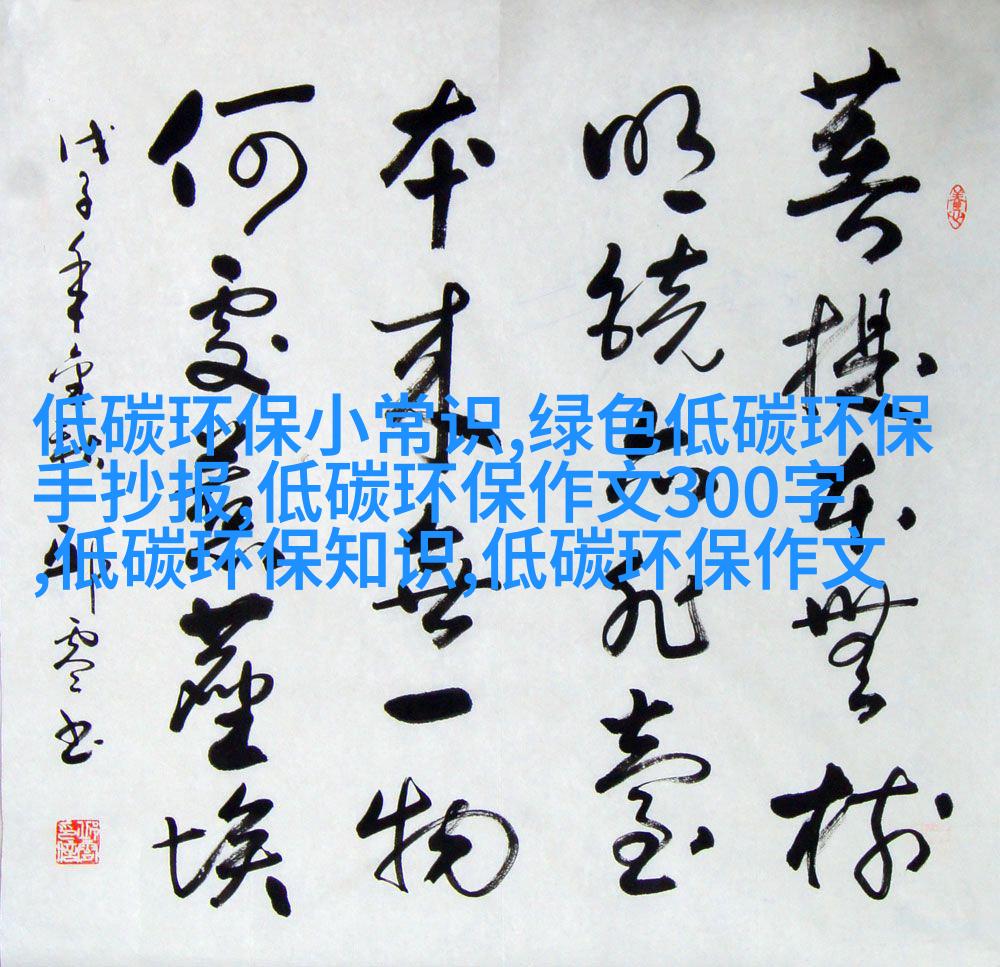 菩提本無樹
明鏡亦非臺
本來無一物
何處惹塵埃
戊子年 書
低碳环保小常识,绿色低碳环保
手抄报,低碳环保作文300字
,低碳环保知识,低碳环保作文